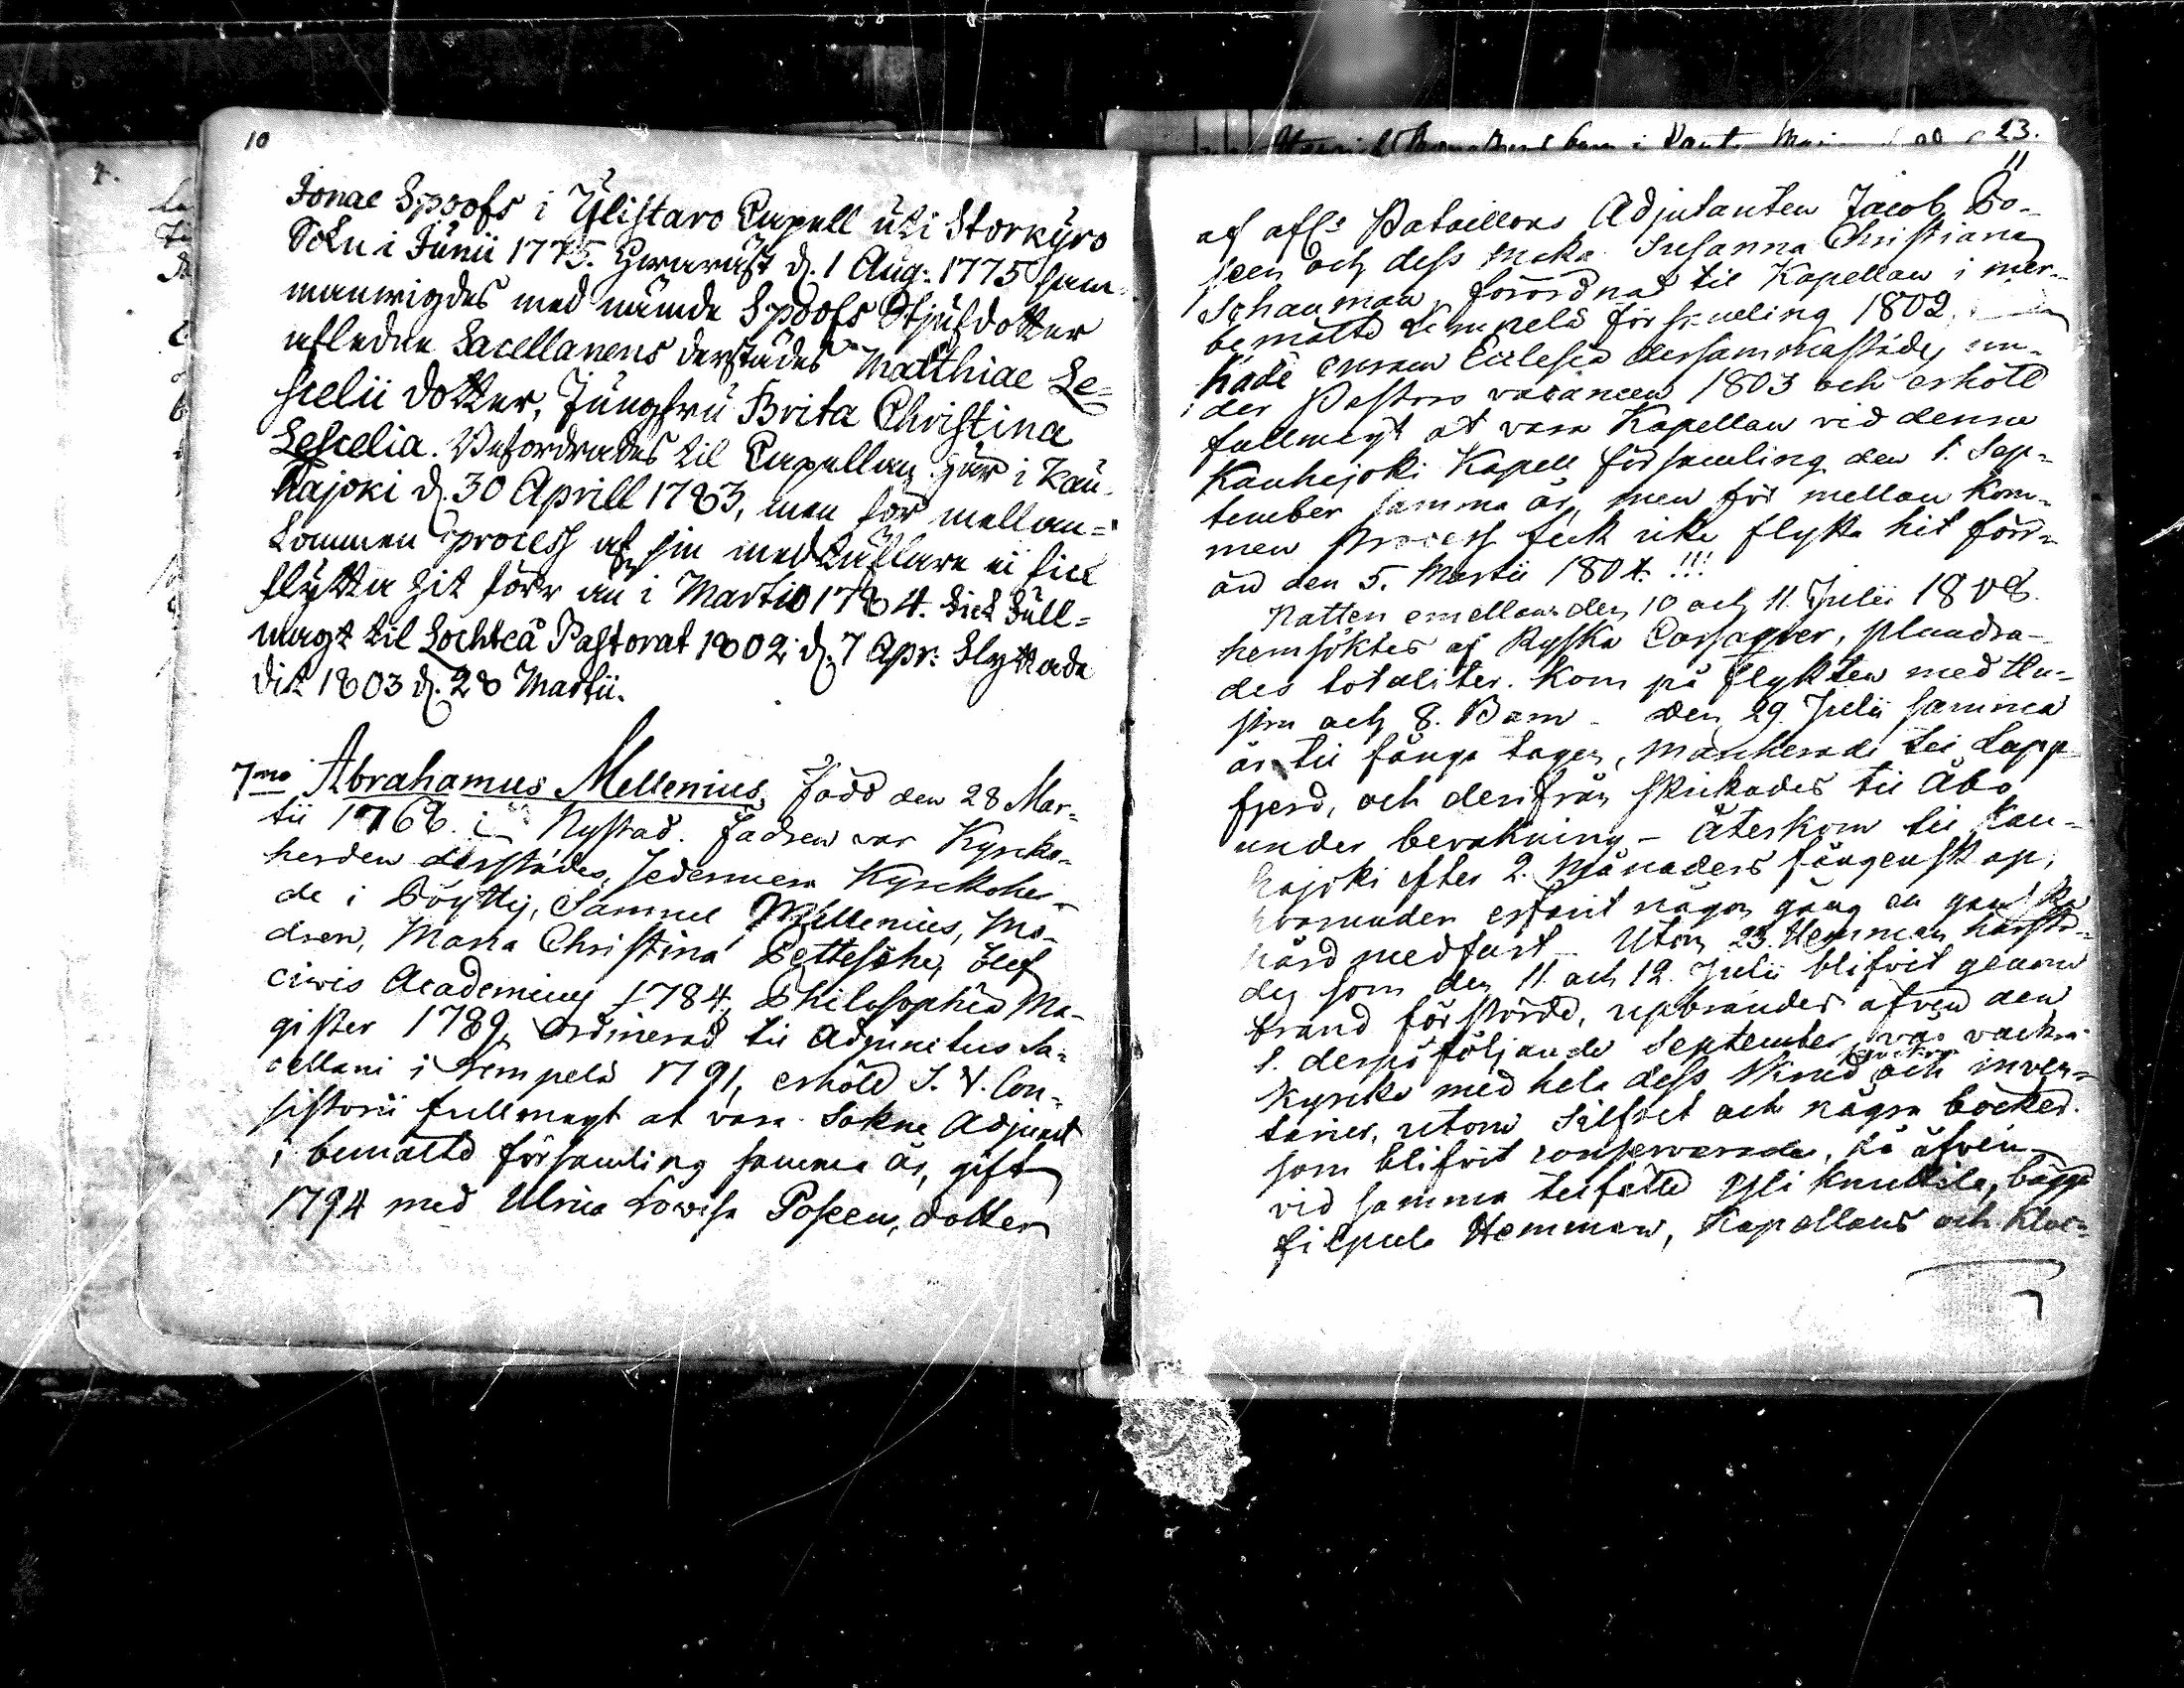 10
Jonae Spoofs i Ylistaro Capell uti Storkyro
Sokn i Junii 1775. Hwaräst d. 1 Aug: 1775 sam-
manwigdes med nämde Spoofs Stjufdotter
afledne Sacellanens derstädes Matthiae Le-
scelii Dotter, Jungfru Brita Christina
Lescelia. Befordrades til Capellan här i Kau-
hajoki d. 30 Aprill 1783, men för mellan-
kommen process af sin medsökare ei fick
flytta hit förr än i Martio 1784. Fick Full-
magt til Lochteå Pastorat 1802 d. 7 Apr: Flyttade
dit 1803 d. 28 Martii.
7mo Abrahamus Mellenius, född den 28 Mar-
tii 1768 i Nystad. Fadren var Kyrko-
herden derstädes, sedermera Kyrckoher-
de i Pöyttij, Samuel Mellenius, Mo-
dren, Maria Christina Pettesche, blef
civis Academicus 1784, Philosophiæ Ma-
gister 1789, ordinerad til Adjunctus Sa-
cellani i Kempelä 1791, erhöld S. V. Con-
sistorii fullmagt at vara Sokne Adjunct
i bemältd församling samma år, gift
1794 med Ulrica Lowisa Poseen, dotter
23.
11
af afl:s Bataillons Adjutanten Jacob Po-
seen och dess maka Susanna Christiana
Schauman, förordnad til Kapellan i mer-
bemältd Kempelä församling 1802,
hade ensam Ecclesia dersammastädes un-
der Pastors vacancen 1803 och erhöld
fullmagt at vara Kapellan vid denna
Kauhajoki Kapell församling den 1. Sep-
tember samma år, men för mellan kom-
men Process fick icke flytta hit förr
än den 5. Martii 1804.!!!
Natten emellan den 10 och 11. Julii 1808.
hemsöktes af Ryska Cossaquer, plundra-
des totaliter. Kom på flykten med Hu-
stru och 8. Barn – den 29. Julii samma
år til fånga tagen, Marcherade til Lapp-
fjerd, och derifrån skickades til Åbo
under bevakning – Återkom til Kau-
hajoki efter 2. Månaders fångenskap,
hvarunder erfarit någon gång en ganska
hård medfart – Utom 23. Hemman härstä-
des som den 11. och 12. Julii blifvit genom
brand förstörde, upbrändes äfven den
1. derpåföljande September, vår vackra
Kyrcka med hela dess skrud och inven-
tarier, utom Silfret och några böcker
som blifvit conserverade, då äfven
vid samma tilfälle Yli Knuttila, bägge
Filpula Hemman, Kapellans och Kloc-